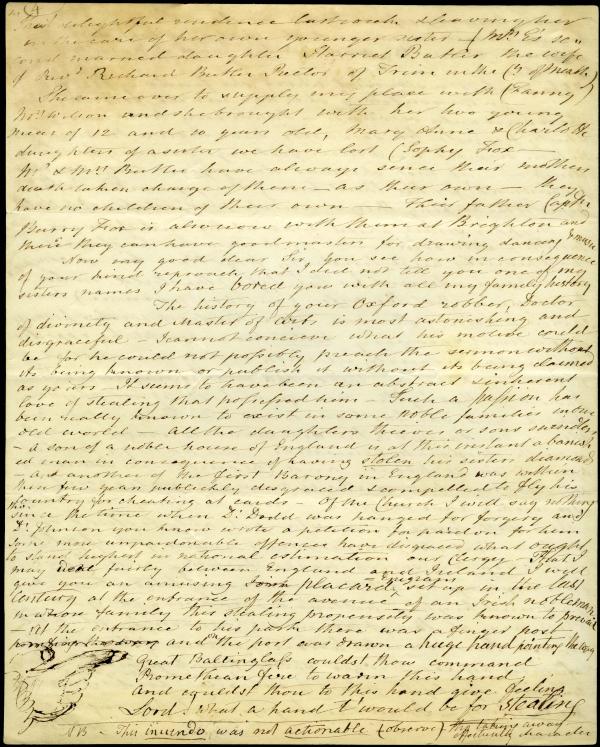 delightful residence last week & leaving her
in the care of her own younger sister - Mrs E's se
cond married daughter Harriet Butler the wife
of Revd Richard Butler Rector of Trim in the Cy of Meath
She came over to supply my place with (Fanny)
Mrs Wilson and she brought with her two young
nieces of 12 and 10 years old, Mary Anne & Charlotte
daughters of a sister we have lost (Sophy Fox -
Mr & Mrs Butler have always since their mothers
death taken charge of them - as their own - they
have no children of their own - Their father Captn
Barry Fox is also now with them at Brighton and
there they can have good masters for drawing dancing & music
Now my good dear Sir, you see how in consequence
of your kind reproach that I did not tell you one of my
sisters names I have bored you with all my family history
The history of your Oxford robber, Doctor
of divinity and Master of arts is most astonishing and
disgraceful - I cannot conceive what his motive could
be for he could not possibly preach the sermon without
its being known or publish it without its being claimed
as yours - It seems to have been an abstract & inherent
love of stealing that possessed him - Such a passion has
been really known to exist in some noble families in our
old world - all the daughters thieves or sons swindlers
- a son of a noble house of England at this instant a banish
ed man in consequence of having stolen his sisters diamonds
- And another of the first Barony in England was within
these few years publickly disgraced & compelled to fly his
country for cheating at cards. Of the Church I will say nothing
tho' since the time when Dr Dodd was hanged for forgery and
Dr Johnson you know wrote a petition for pardon for him
more unpardonable offences have disgraced what ought
to stand highest in national estimation our Clergy That I
may deal fairly between England and Ireland I will
give you an amusing placard - Epigram set up in the last
Century at the entrance of the avenue of an Irish nobleman
in whose family this stealing propensity was known to prevail
- At the entrance to his park there was a finger post
and on the post was drawn a huge hand pointing the way
Great Baltinglass couldst thou command
Promethean fire to warm this hand
And couldst thou to this hand give feeling
Lord! what a hand t'would be for Stealing
NB - This inuendo was not actionable (observe) the taking away
effectually character